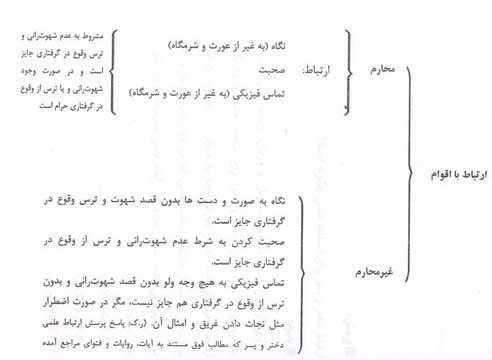 ارتباط با اقوام
محارم
ارتباط:
نگاه (به غیر از عورت و شرمگاه)
صحبت
تماس فیزیکی (به غیر از عورت و شرمگاه)
مشروط به عدم شهوت‌رانی و
ترس وقوع در گرفتاری جایز
است و در صورت وجود
شهوت‌رانی و یا ترس از وقوع
در گرفتاری حرام است
غیرمحارم
نگاه به صورت و دست ها بدون قصد شهوت و ترس وقوع در
گرفتاری جایز است.
صحبت کردن به شرط عدم شهوت‌رانی و ترس از وقوع در
گرفتاری جایز است.
تماس فیزیکی به هیچ وجه ولو بدون قصد شهوت‌رانی و بدون
ترس از وقوع در گرفتاری هم جایز نیست، مگر در صورت اضطرار
مثل نجات دادن غریق و امثال آن. (ر.ک: پاسخ پرسش ارتباط علمی
دختر و پسر که مطالب فوق مستند به آیات، روایات و فتوای مراجع آمده